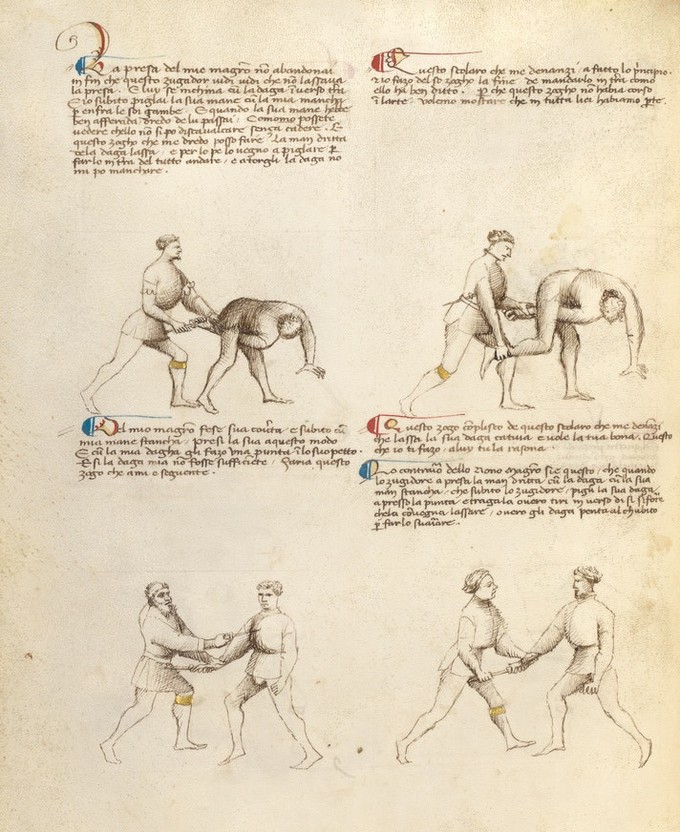 La presa del mie magro nō abandonai
in fin che questo zugador vidi vidi che nō lassava
la presa. E luy se inchina cū la daga inverso tra
E io subito piglai la sua mane cū la mia mancha
p enfra le soi gambe. E quando la sua mane hebbe
ben afferada dredo de lu passai. Como possete
vedere chello nō si po discavalcare senza cadere. E
questo zogho che me dredo posso fare. La man dritta
dela daga lassa, e per lo pe lo vegno a piglare p
farlo in tra del tutto andare, e a torgli la daga nō
mi po manchare.
Questo scolaro che me denanzi, a fatto lo principio.
E io fazo del so zogho la fine de mandarlo in tra como
ello ha ben ditto. P che questo zogho nō habia corso
ī larte, volemo mostrare che in tutta lieī habiamo pte.
Del mio magro fese sua coverta e subito cū
mia mane stancha, presi la sua a questo modo
E cū la mia dagha gli fazo una punta ī lo suo petto.
E si la daga mia nō fosse sufficiente, faria questo
zogo che a mi e seguente.
Questo zogo cōplisco de questo scolaro che me denāzi
che lassa la sua daga cativa e vole la tua bona. Questo
che io ti fazo, aluy tu la rasona
Lo contrario dello ziono magro si e questo, che quando
lo zugadore a presa la man dritta cū la daga, cū la sua
man stancha, che subito lo zugadore, pigli la sua daga
apresso la punta, e tragala overo tiri inverso di si, si forte
chela cōvegna lassare, overo gli daga penta al chubito
p farlo svariare.